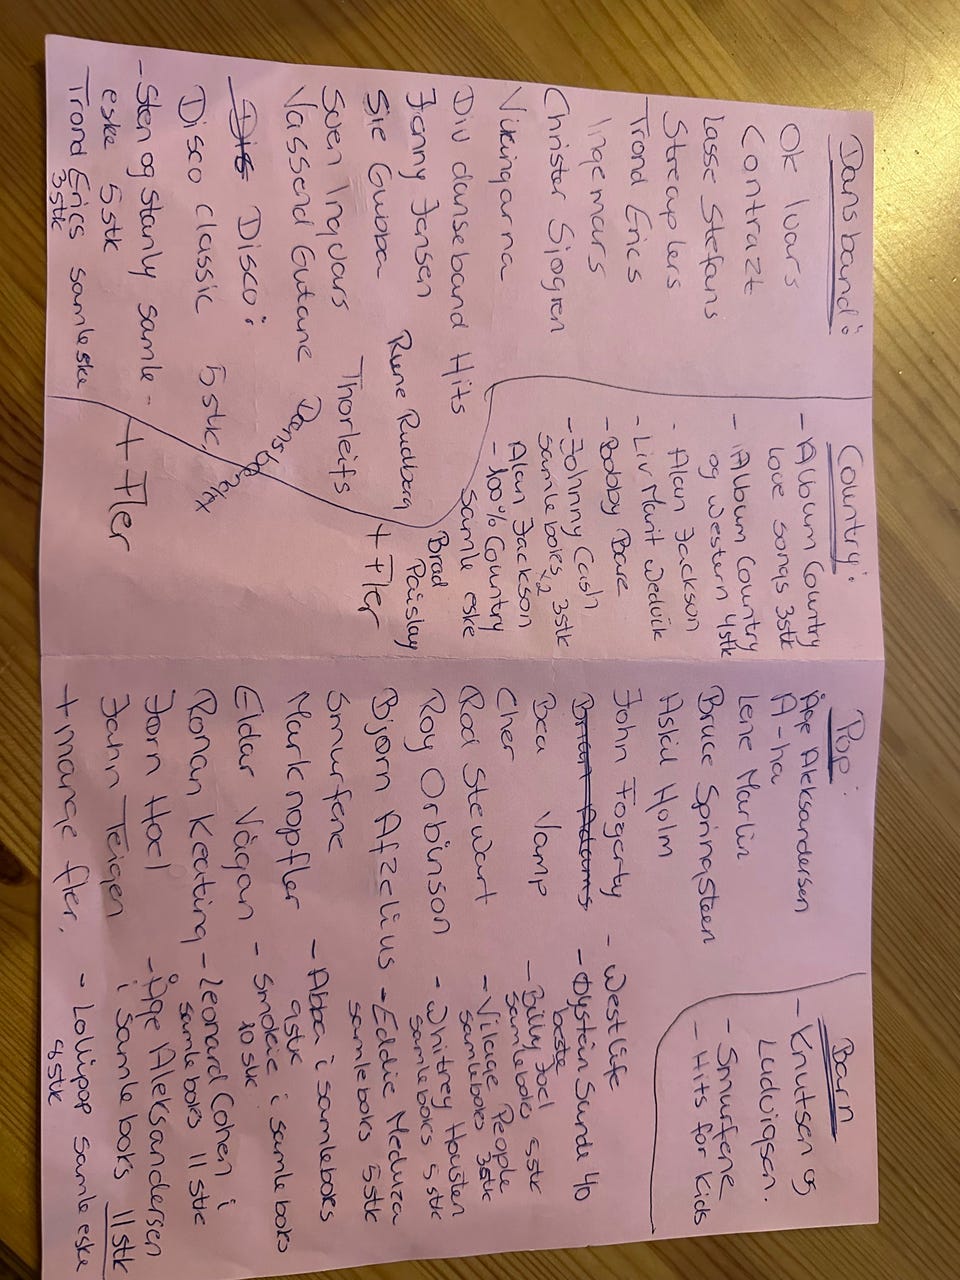 Dansband:
Ok Ivars
Contrazt
Lasse Stefans
Streaplers
Trond Erics
Ingemars
Christer Sjogren
Vikingarna
Div danseband Hits
Jenny Jensen
Sie Gubba
Rune Rudberg
Sven Ingvars
Thorleifs
+ Fler
Vassend Gutane
Dansband
Mix
Disco:
Disco classic 5stk,
- Sten og stanly samle-
eske 5stk
+ Fler
Trond Erics samleeske
3stk
Country:
- Album Country
love songs 3stk
- Album Country
og western 4stk
- Alan Jackson
- Liv Marit Wedvik
- Bobby Bare
- Johnny Cash
samleboks x2 3stk
Alan Jackson
- 100% Country
samle eske
Brad
Paislay
Pop:
Åge Aleksandersen
A-ha
Lene Marlin
Bruce Springsteen
Askil Holm
John Fogerty
Brian Adams
Bea Vamp
Cher
Rod Stewart
Roy Orbinson
Bjørn Afzelius
Smurfene
Mark nopfler
Eldar Vågan
Ronan Keating
Jørn Hoel
Jahn Teigen
+ mange fler.
- Westlife
- Øystein Sunde 40
beste
- Billy Joel
samleboks 5stk
- Village People
samleboks 3stk
- Whitney Housten
samleboks 5stk
- Eddie Meduza
samleboks 5stk
- Abba i samleboks
9stk
- Smokie i samleboks
10stk
- Leonard Cohen i
samleboks 11stk
- Åge Aleksandersen
i samleboks 11stk
- Lollipop samleeske
8stk
Barn
- Knutsen og
Ludvigsen.
- Smurfene
- Hits for kids